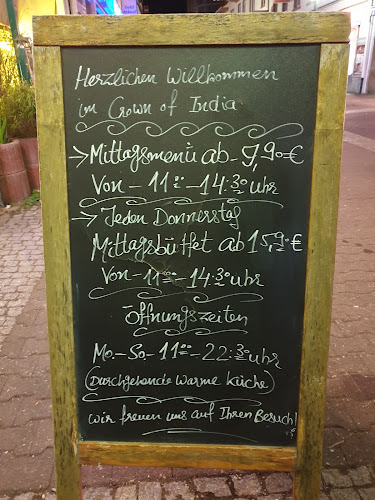 Herzlichen Willkommen
im Crown of India
→ Mittagsmenü ab - 9,90€
Von - 11:00 - 14:30 uhr
→ Jeden Donnerstag
Mittagsbüffet ab 15,90€
Von - 11:00 - 14:30 uhr
Öffnungszeiten
Mo. - So - 11:00 - 22:30 uhr
(Durchgehende warme Küche)
Wir freuen uns auf Ihren Besuch!